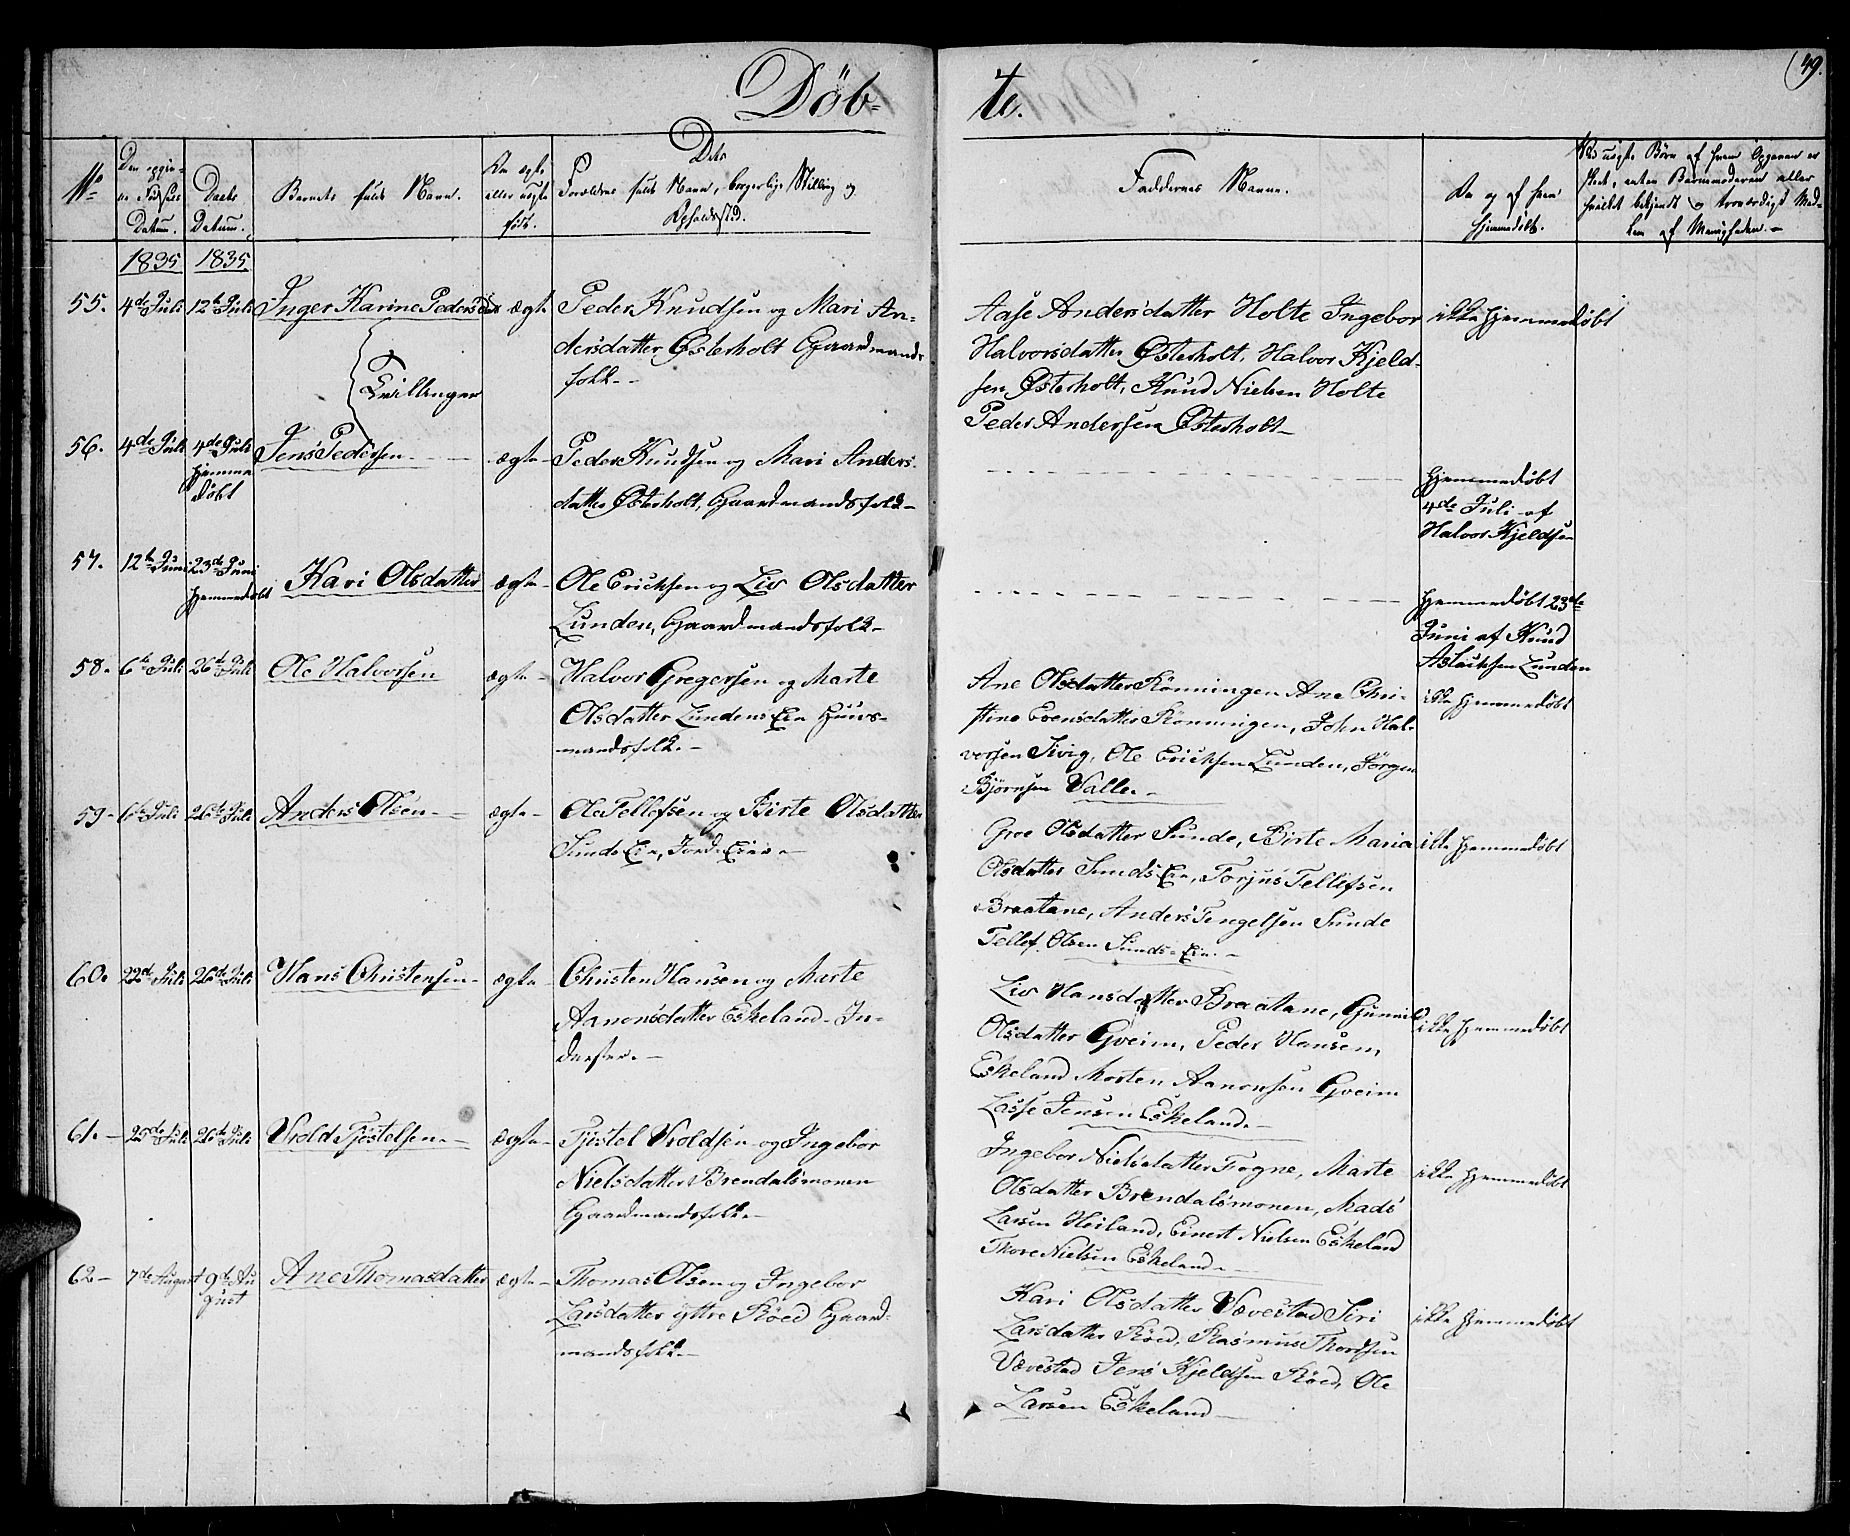 Døb-
te.
49.
No
Den eggen-
Fødsels
Datum.
Daabs
Datum.
Barnets fulde Navn.
Om ægte
eller uægte
født.
Dets
Forældres fulde Navn, borgerlige Stilling og
Opholdssted.
Faddernes Navne.
Om og af hvem
hjemmedøbt.
Ved uægte Børn af hvem Opgaven er
skeet, enten Barnemoderen eller
hvilket bekjendt og troværdigt Med-
lem af Menigheden.-
1835 1835
55. 4de Juli 12te Juli Inger Karine Pedersdatter ægte Peder Knudsen og Mari An-
dersdatter Østerholt Gaardmands
folk.-
Tvillinger
Aase Andersdatter Holte Ingebor
Halvorsdatter Østerholt, Halvor Kjeld-
sen Østerholt, Knud Nielsen Holte
Peder Andersen Østerholt-
ikke hjemmedøbt
56. 4de Juli 4de Juli
hjemme
døbt
Jens Pedersen.- ægte- Peder Knudsen og Mari Anders-
datter Østerholt, Gaardmandsfolk-
hjemmedøbt
4de Juli af
Halvor Kjeldsen
57. 12te Juni 23de Juni
hjemmedøbt
Kari Olsdatter ægte- Ole Ericksen og Liv Olsdatter
Lunden, Gaardmandsfolk-
hjemmedøbt 23de
Juni af Knud
Aslacksen Lunden
58- 6te Juli 26de Juli Ole Halvorsen ægte- Halvor Gregersen og Marte
Olsdatter Lundens Eie Huus-
mandsfolk.-
Ane Olsdatter Rönningen Ane Chri-
stine Evensdatter Rönningen, John Hal-
vorsen Sivig, Ole Ericksen Lunden, Jörgen
Björnsen Valle.-
ikke hjemmedøbt
59- 6te Juli 26de Juli Anders Olsen- ægte- Ole Tellefsen og Birte Olsdatter
Sunds Eie, Jord Eier.-
Groe Olsdatter Sunde, Birte Maria
Olsdatter Sunds Eie, Torjus Tellefsen
Braatane, Anders Tengelsen Sunde
Tellef Olsen Sunds-Eie.-
ikke hjemmedøbt
60. 22de Juli 26de Juli Hans Christensen- ægte- Christen Hansen og Marte
Aanonsdatter Eskeland- In-
derster.-
Liv Hansdatter Braatane, Gunnild
Olsdatter Gveim, Peder Hansen,
Eskeland Morten Aanonsen Gveim
Lasse Jensen Eskeland.-
ikke hjemmedøbt
61.- 25de Juli 26de Juli Vrold Tjöstelsen- ægte- Tjöstel Vroldsen og Ingebor
Nielsdatter Brendalsmonen
Gaardmandsfolk.-
Ingebor Nielsdatter Fogne, Marte
Olsdatter Brendalsmonen, Mads
Larsen Heiland, Einert Nielsen Eskeland
Thore Nielsen Eskeland.-
ikke hjemmedøbt
62- 7de August 9de Au
gust
Ane Thomasdatter ægte- Thomas Olsen og Ingebor
Larsdatter yttre Röed Gaard-
mandsfolk.-
Kari Olsdatter Vævestad Siri
Larsdatter Röed, Rasmus Thordsen
Vævestad Jens Kjeldsen Röed, Ole
Larsen Eskeland-
ikke hjemmedøbt